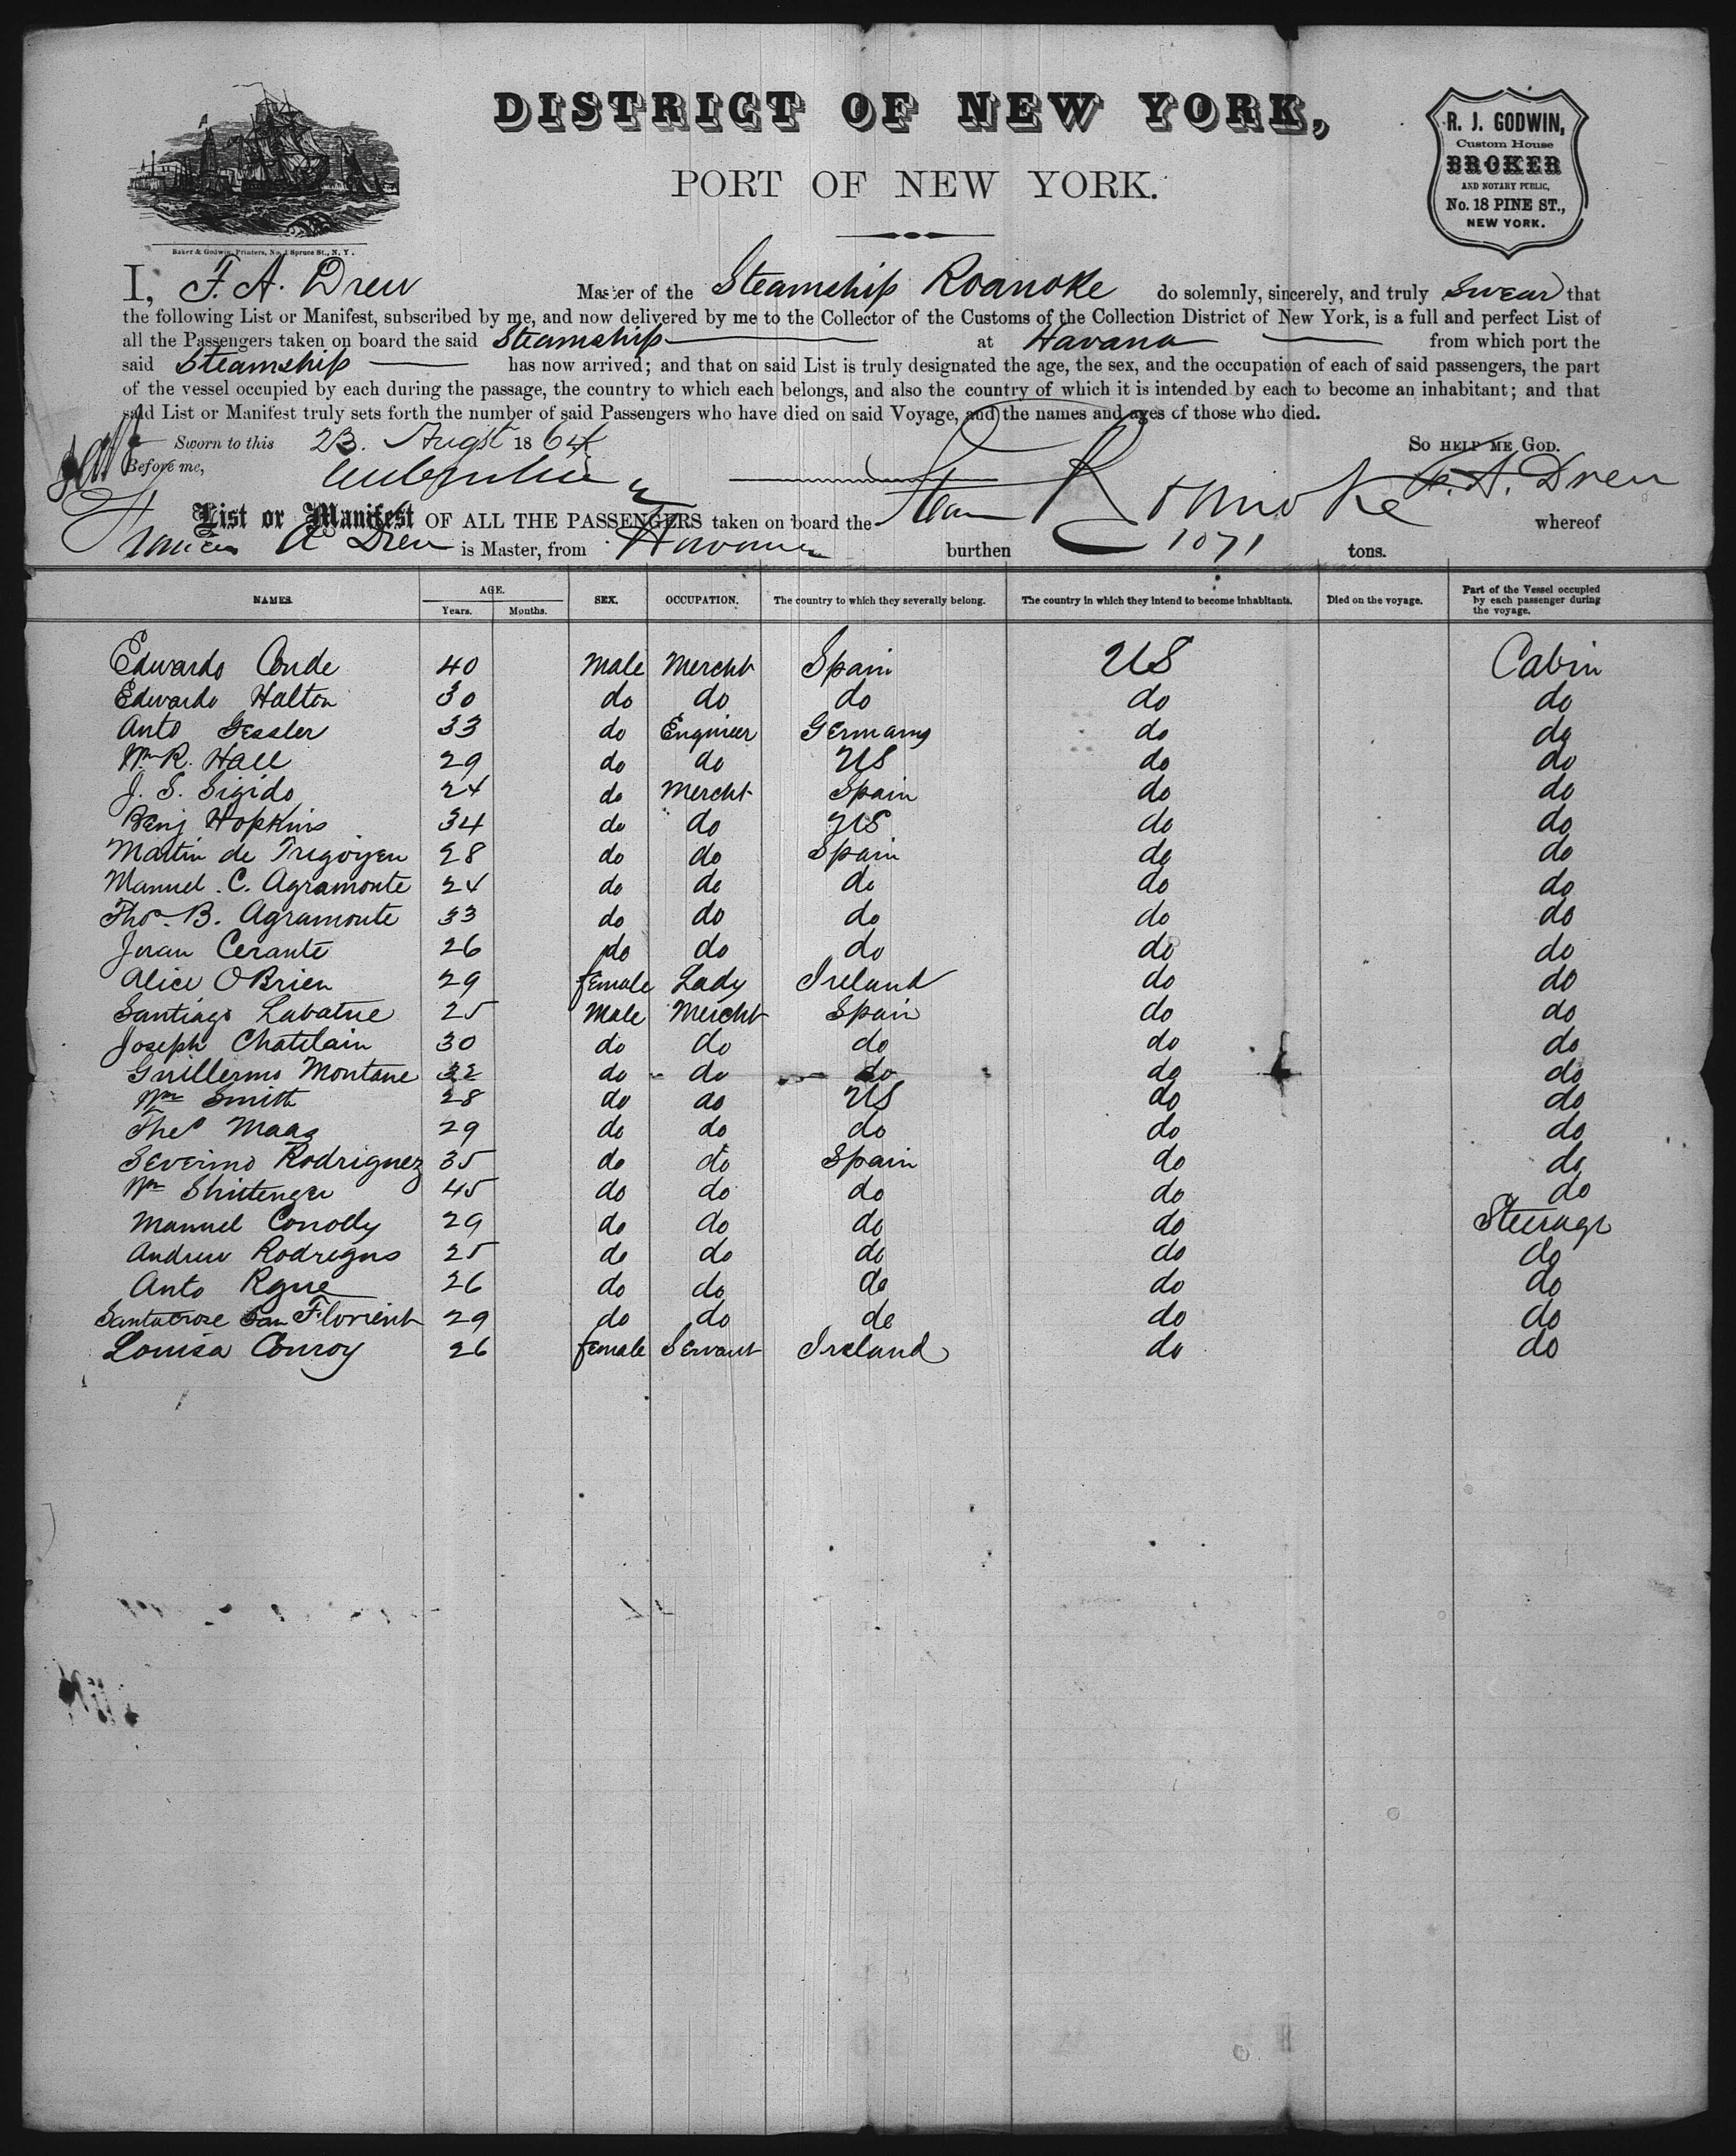 DISTRICT OF NEW YORK,
PORT OF NEW YORK.
R. J. GODWIN,
Custom House
BROKER
AND NOTARY PUBLIC,
No. 18 PINE ST.,
NEW YORK.
Baker & Godwin, Printers, No. 1 Spruce St., N. Y.
I, F. A. Drew Master of the Steamship Roanoke do solemnly, sincerely, and truly Swear that
the following List or Manifest, subscribed by me, and now delivered by me to the Collector of the Customs of the Collection District of New York, is a full and perfect List of
all the Passengers taken on board the said Steamship at Havana from which port the
said Steamship has now arrived; and that on said List is truly designated the age, the sex, and the occupation of each of said passengers, the part
of the vessel occupied by each during the passage, the country to which each belongs, and also the country of which it is intended by each to become an inhabitant; and that
said List or Manifest truly sets forth the number of said Passengers who have died on said Voyage, and the names and ages of those who died.
Sworn to this 23. Augst 1864 So HELP ME GOD.
Before me, F. A. Drew
List or Manifest OF ALL THE PASSENGERS taken on board the Steam Roanoke whereof
Francis A Drew is Master, from Havana burthen 1071 tons.
NAMES. AGE. Years. Months. SEX. OCCUPATION. The country to which they severally belong. The country in which they intend to become inhabitants. Died on the voyage. Part of the Vessel occupied by each passenger during the voyage.
Edwardo Conde 40 Male Mercht Spain US Cabin
Edwardo Halton 30 do do do do do
Anto Gessler 33 do Engineer Germany do do
Wm R. Hall 29 do do US do do
J. S. Sigido 24 do Mercht Spain do do
Benj Hopkins 34 do do US do do
Martin de Trigoyen 28 do do Spain do do
Manuel C. Agramonte 24 do do do do do
Thos B. Agramonte 33 do do do do do
Juan Cerante 26 do do do do do
Alice OBrien 29 female Lady Ireland do do
Santiago Labatue 25 Male Mercht Spain do do
Joseph Chatelain 30 do do do do do
Guillermo Montane 32 do do do do do
Wm Smith 28 do do US do do
Thos Maas 29 do do do do do
Severino Rodriguez 35 do do Spain do do
Wm 45 do do do do do
Manuel Conolly 29 do do do do Steerage
Andrew Rodregus 25 do do do do do
Anto 26 do do do do do
San Florient 29 do do do do do
Louisa Conroy 26 female Servant Ireland do do